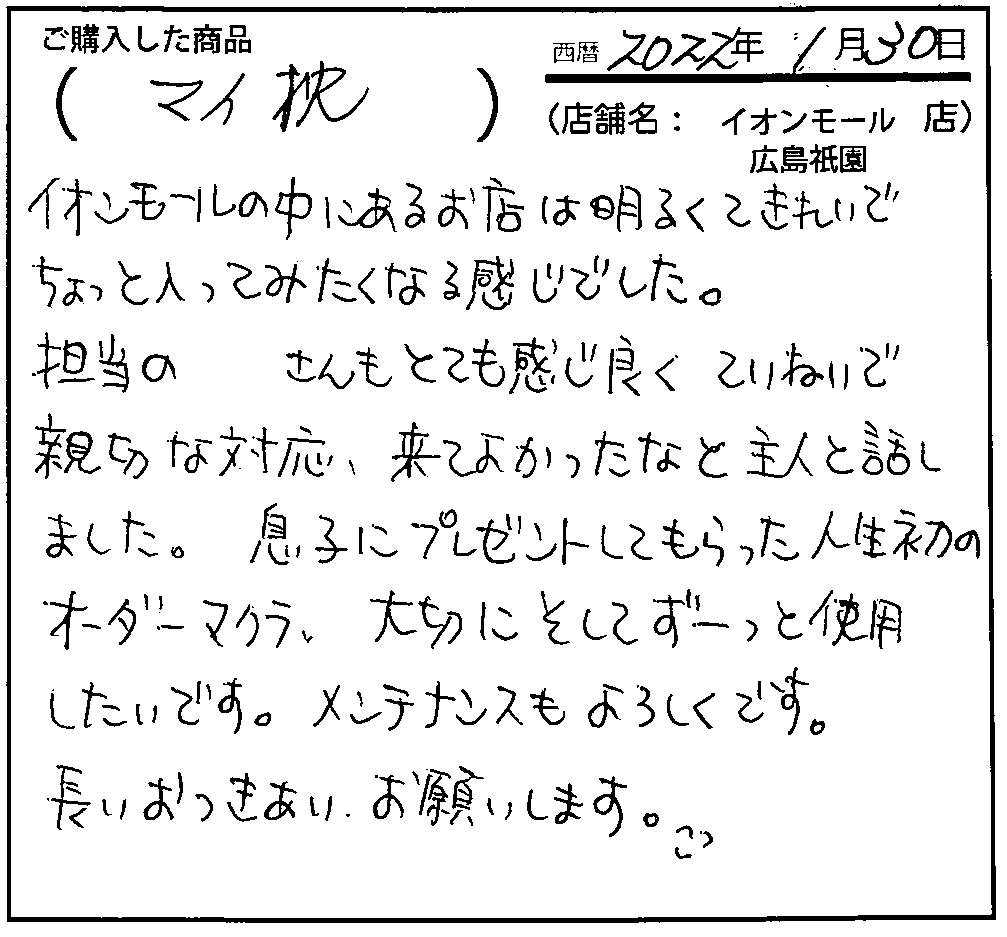 ご購入した商品
西暦 2022年 1月30日
( マイ枕 )
(店舗名: イオンモール 広島祇園 店)
イオンモールの中にあるお店は明るくてきれいで
ちょっと入ってみたくなる感じでした。
担当の さんもとても感じ良く ていねいで
親切な対応、来てよかったなと主人と話し
ました。 息子にプレゼントしてもらった人生初の
オーダーマクラ、 大切にそしてずーっと使用
したいです。メンテナンスもよろしくです。
長いおつきあい、お願いします。